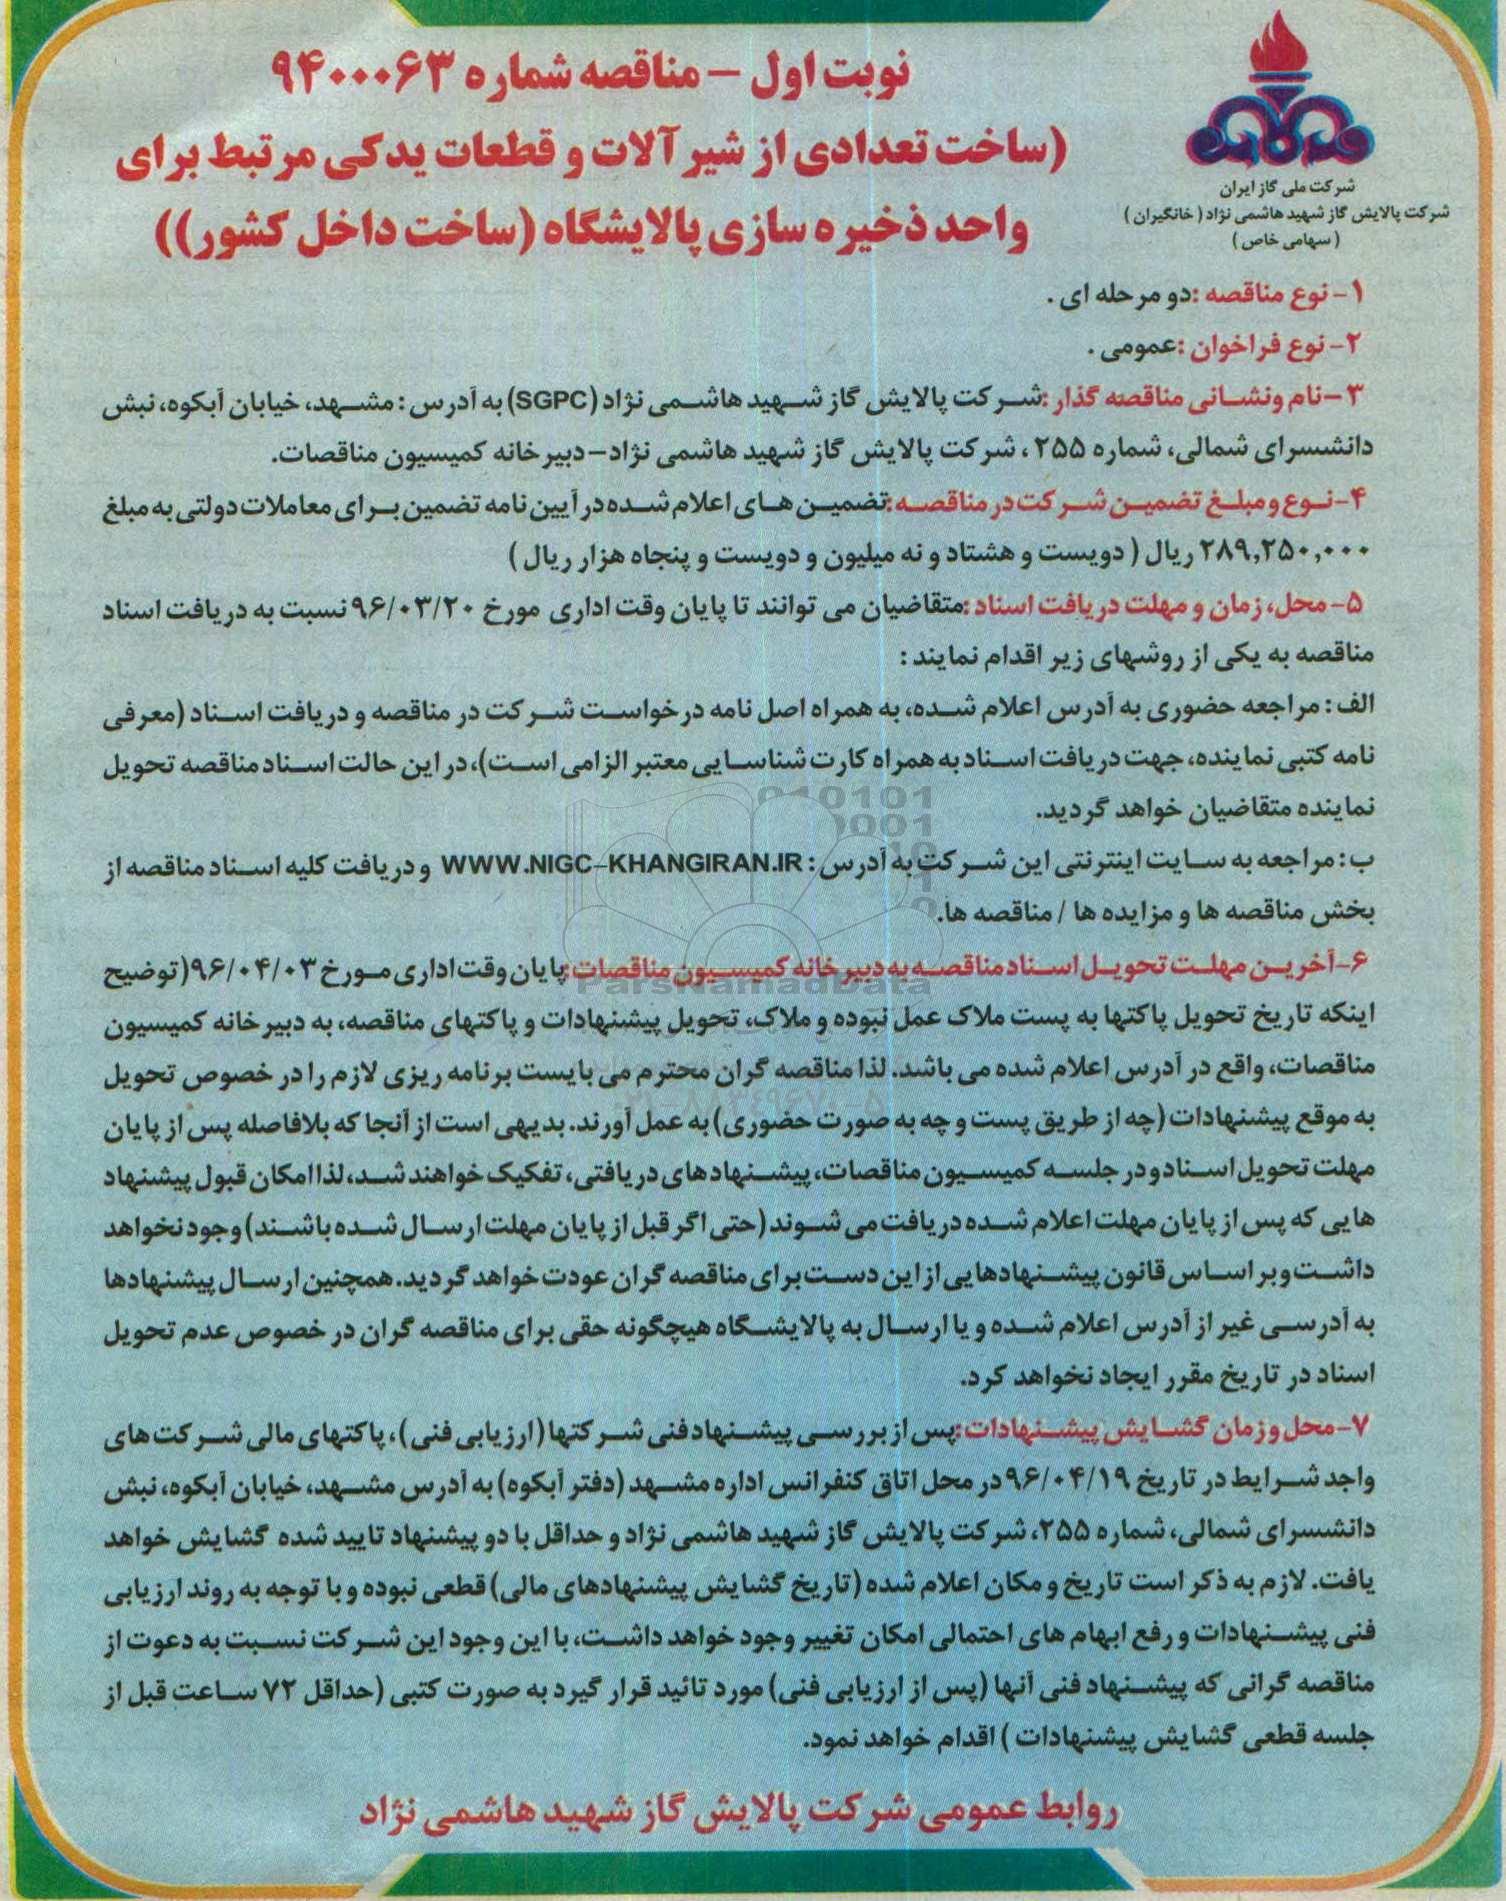 نوبت اول – مناقصه شماره ۹۴۰۰۰۶۳
(ساخت تعدادی از شیرآلات و قطعات یدکی مرتبط برای
واحد ذخیره سازی پالایشگاه (ساخت داخل کشور))
شرکت ملی گاز ایران
شرکت پالایش گاز شهید هاشمی نژاد ( خانگیران )
( سهامی خاص )
۱- نوع مناقصه :دو مرحله ای .
۲- نوع فراخوان :عمومی .
۳-نام ونشانی مناقصه گذار :شرکت پالایش گاز شهید هاشمی نژاد (SGPC) به آدرس : مشهد، خیابان آبکوه، نبش
دانشسرای شمالی، شماره ۲۵۵ ، شرکت پالایش گاز شهید هاشمی نژاد–دبیرخانه کمیسیون مناقصات.
۴-نوع و مبلغ تضمین شرکت در مناقصه :تضمین های اعلام شده در آیین نامه تضمین برای معاملات دولتی به مبلغ
۲۸۹,۲۵۰,۰۰۰ ریال ( دویست و هشتاد و نه میلیون و دویست و پنجاه هزار ریال )
۵- محل، زمان و مهلت دریافت اسناد :متقاضیان می توانند تا پایان وقت اداری مورخ ۹۶/۰۳/۲۰ نسبت به دریافت اسناد
مناقصه به یکی از روشهای زیر اقدام نمایند :
الف : مراجعه حضوری به آدرس اعلام شده، به همراه اصل نامه درخواست شرکت در مناقصه و دریافت اسناد (معرفی
نامه کتبی نماینده، جهت دریافت اسناد به همراه کارت شناسایی معتبر الزامی است)، در این حالت اسناد مناقصه تحویل
نماینده متقاضیان خواهد گردید.
ب : مراجعه به سایت اینترنتی این شرکت به آدرس : WWW.NIGC-KHANGIRAN.IR و دریافت کلیه اسناد مناقصه از
بخش مناقصه ها و مزایده ها / مناقصه ها.
۶-آخرین مهلت تحویل اسناد مناقصه به دبیرخانه کمیسیون مناقصات :پایان وقت اداری مورخ ۹۶/۰۴/۰۳( توضیح
ParsNamadData
اینکه تاریخ تحویل پاکتها به پست ملاک عمل نبوده و ملاک، تحویل پیشنهادات و پاکتهای مناقصه، به دبیرخانه کمیسیون
مناقصات، واقع در آدرس اعلام شده می باشد. لذا مناقصه گران محترم می بایست برنامه ریزی لازم را در خصوص تحویل
۰۲۱-۸۸۳۴۹۶۷۰-۵
به موقع پیشنهادات (چه از طریق پست و چه به صورت حضوری) به عمل آورند. بدیهی است از آنجا که بلافاصله پس از پایان
مهلت تحویل اسناد و در جلسه کمیسیون مناقصات، پیشنهادهای دریافتی، تفکیک خواهند شد، لذا امکان قبول پیشنهاد
هایی که پس از پایان مهلت اعلام شده دریافت می شوند (حتی اگر قبل از پایان مهلت ارسال شده باشند) وجود نخواهد
داشت و بر اساس قانون پیشنهادهایی از این دست برای مناقصه گران عودت خواهد گردید. همچنین ارسال پیشنهادها
به آدرسی غیر از آدرس اعلام شده و یا ارسال به پالایشگاه هیچگونه حقی برای مناقصه گران در خصوص عدم تحویل
اسناد در تاریخ مقرر ایجاد نخواهد کرد.
۷-محل و زمان گشایش پیشنهادات :پس از بررسی پیشنهاد فنی شرکتها (ارزیابی فنی ) ، پاکتهای مالی شرکت های
واجد شرایط در تاریخ ۹۶/۰۴/۱۹ در محل اتاق کنفرانس اداره مشهد (دفتر آبکوه) به آدرس مشهد، خیابان آبکوه، نبش
دانشسرای شمالی، شماره ۲۵۵، شرکت پالایش گاز شهید هاشمی نژاد و حداقل با دو پیشنهاد تایید شده گشایش خواهد
یافت. لازم به ذکر است تاریخ و مکان اعلام شده (تاریخ گشایش پیشنهادهای مالی) قطعی نبوده و با توجه به روند ارزیابی
فنی پیشنهادات و رفع ابهام های احتمالی امکان تغییر وجود خواهد داشت، با این وجود این شرکت نسبت به دعوت از
مناقصه گرانی که پیشنهاد فنی آنها (پس از ارزیابی فنی) مورد تائید قرار گیرد به صورت کتبی (حداقل ۷۲ ساعت قبل از
جلسه قطعی گشایش پیشنهادات ) اقدام خواهد نمود.
روابط عمومی شرکت پالایش گاز شهید هاشمی نژاد